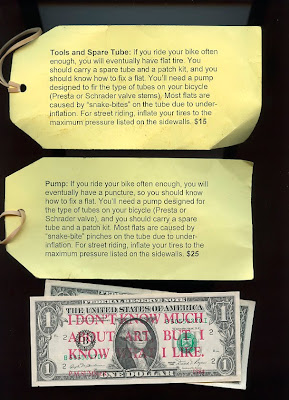 Tools and Spare Tube: If you ride your bike often
enough, you will eventually have flat tire. You
should carry a spare tube and a patch kit, and you
should know how to fix a flat. You'll need a pump
designed to fir the type of tubes on your bicycle
(Presta or Schrader valve stems). Most flats are
caused by "snake-bites" on the tube due to under-
inflation. For street riding, inflate your tires to the
maximum pressure listed on the sidewalls. $15
Pump: If you ride your bike often enough, you will
eventually have a puncture, so you should know
how to fix a flat. You'll need a pump designed for
the type of tubes on your bicycle (Presta or
Schrader valve), and you should carry a spare
tube and a patch kit. Most flats are caused by
"snake-bite" pinches on the tube due to under-
inflation. For street riding, inflate your tires to the
maximum pressure listed on the sidewalls. $25
FEDERAL RESERVE NOTE
THE UNITED STATES OF AMERICA
I DON'T KNOW MUCH
ABOUT ART, BUT I
KNOW WHAT I LIKE.
ONE DOLLAR